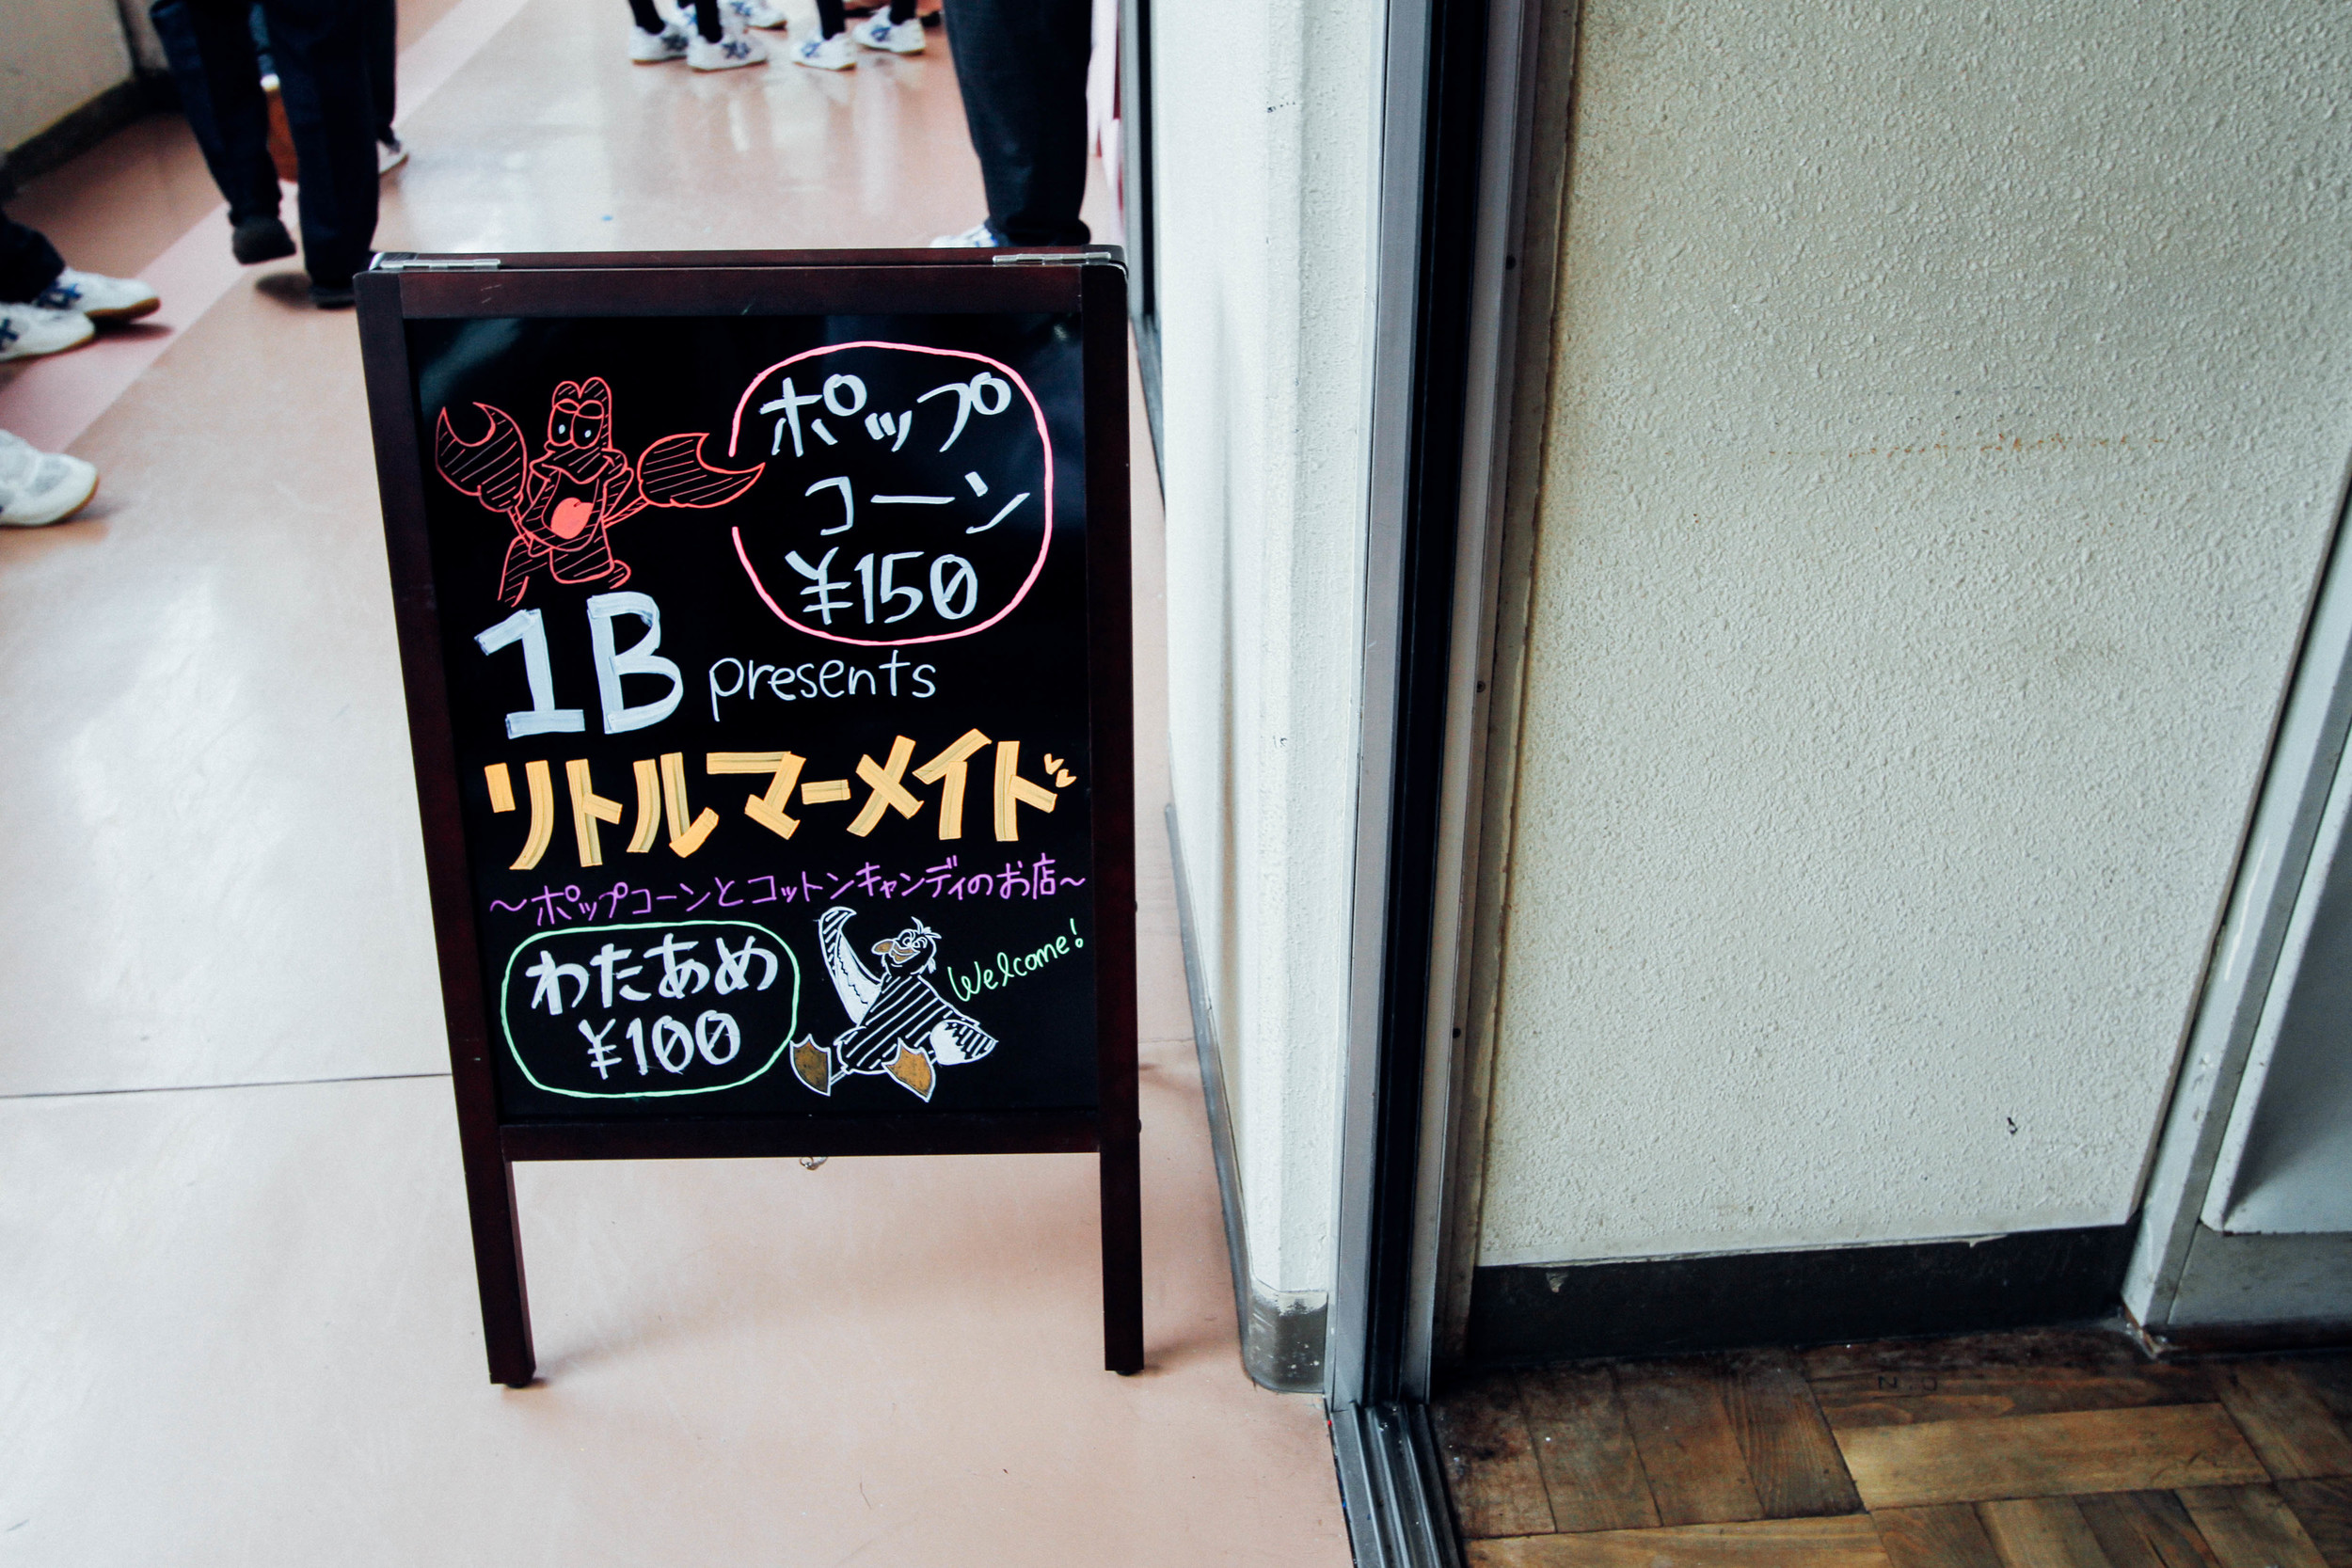 ポップ
コーン
¥150
1B presents
リトルマーメイド
～ポップコーンとコットンキャンディのお店～
わたあめ
¥100
Welcome!